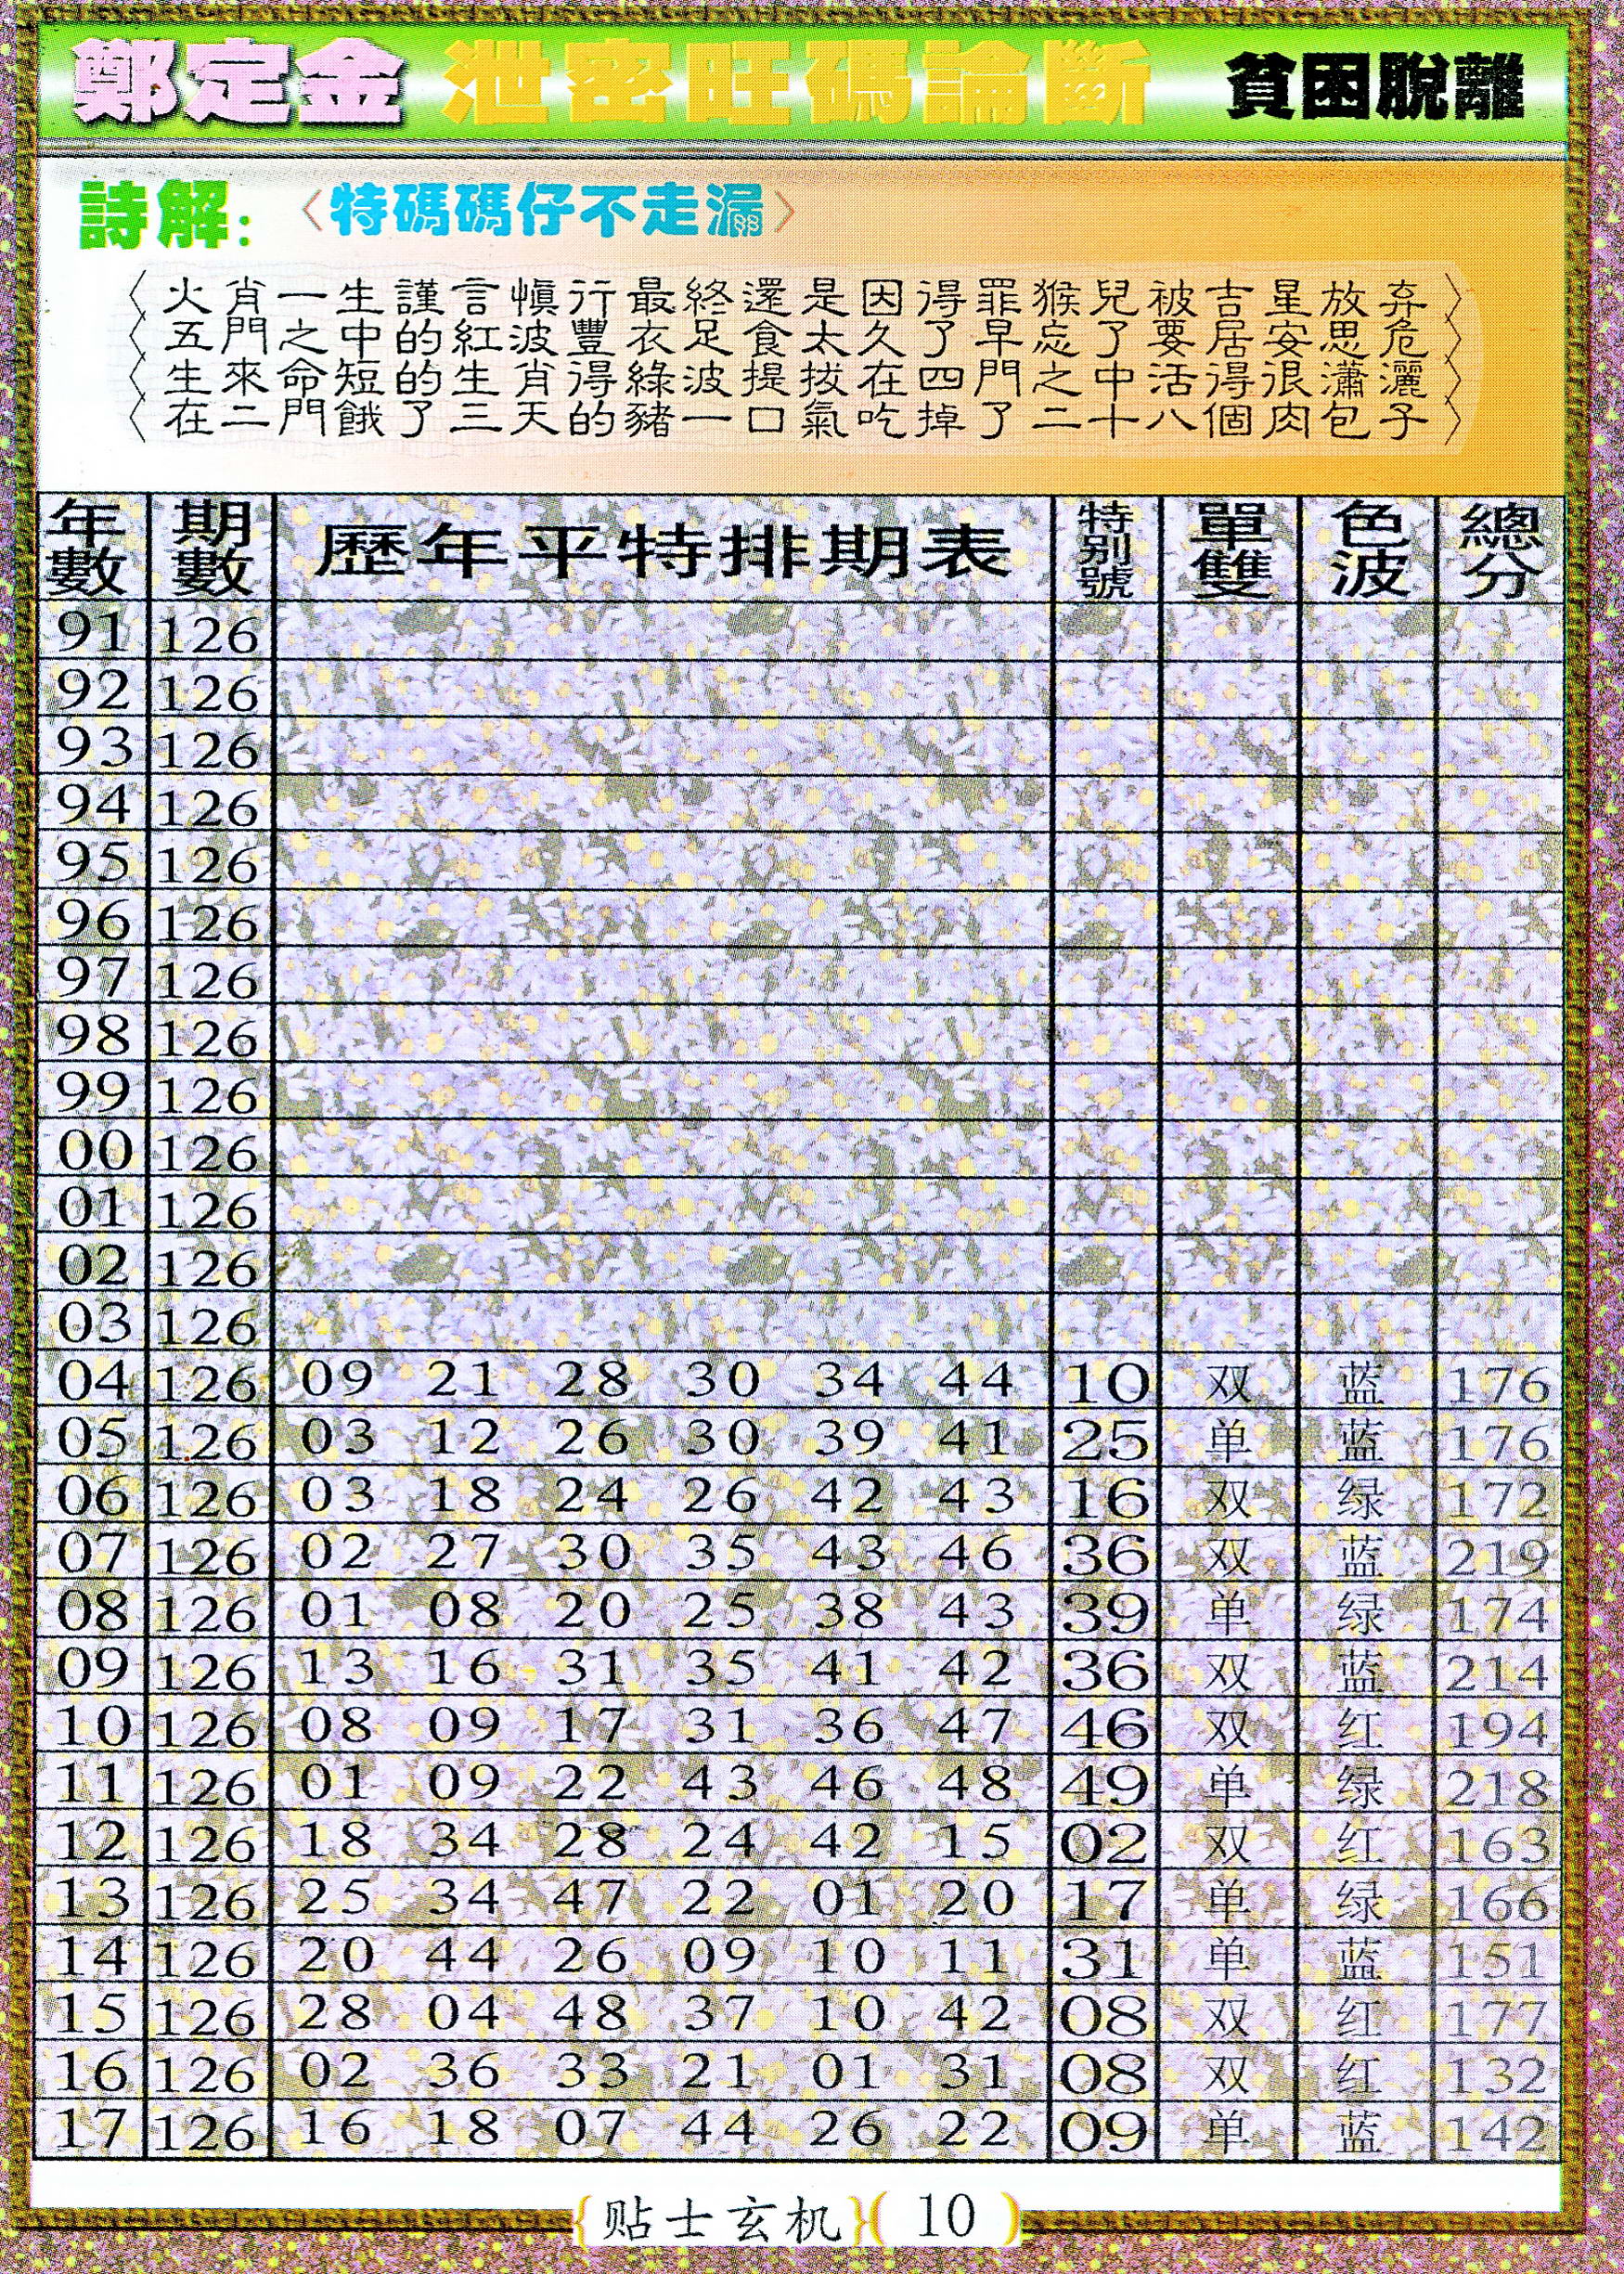 鄭定金 泄密旺碼論斷 貧困脫離
詩解：〈特碼碼仔不走漏〉
〈火肖一生謹言慎行最終還是因得罪猴兒被吉星放弃〉
〈五門之中的紅波豐衣足食太久了早忘了要居安思危〉
〈生來命短的生肖得綠波提拔在四門之中活得很瀟灑〉
〈在二門餓了三天的豬一口氣吃掉了二十八個肉包子〉
年數 期數 歷年平特排期表 特别號 單雙 色波 總分
91 126
92 126
93 126
94 126
95 126
96 126
97 126
98 126
99 126
00 126
01 126
02 126
03 126
04 126 09 21 28 30 34 44 10 双 蓝 176
05 126 03 12 26 30 39 41 25 单 蓝 176
06 126 03 18 24 26 42 43 16 双 绿 172
07 126 02 27 30 35 43 46 36 双 蓝 219
08 126 01 08 20 25 38 43 39 单 绿 174
09 126 13 16 31 35 41 42 36 双 蓝 214
10 126 08 09 17 31 36 47 46 双 红 194
11 126 01 09 22 43 46 48 49 单 绿 218
12 126 18 34 28 24 42 15 02 双 红 163
13 126 25 34 47 22 01 20 17 单 绿 166
14 126 20 44 26 09 10 11 31 单 蓝 151
15 126 28 04 48 37 10 42 08 双 红 177
16 126 02 36 33 21 01 31 08 双 红 132
17 126 16 18 07 44 26 22 09 单 蓝 142
{贴士玄机}(10)